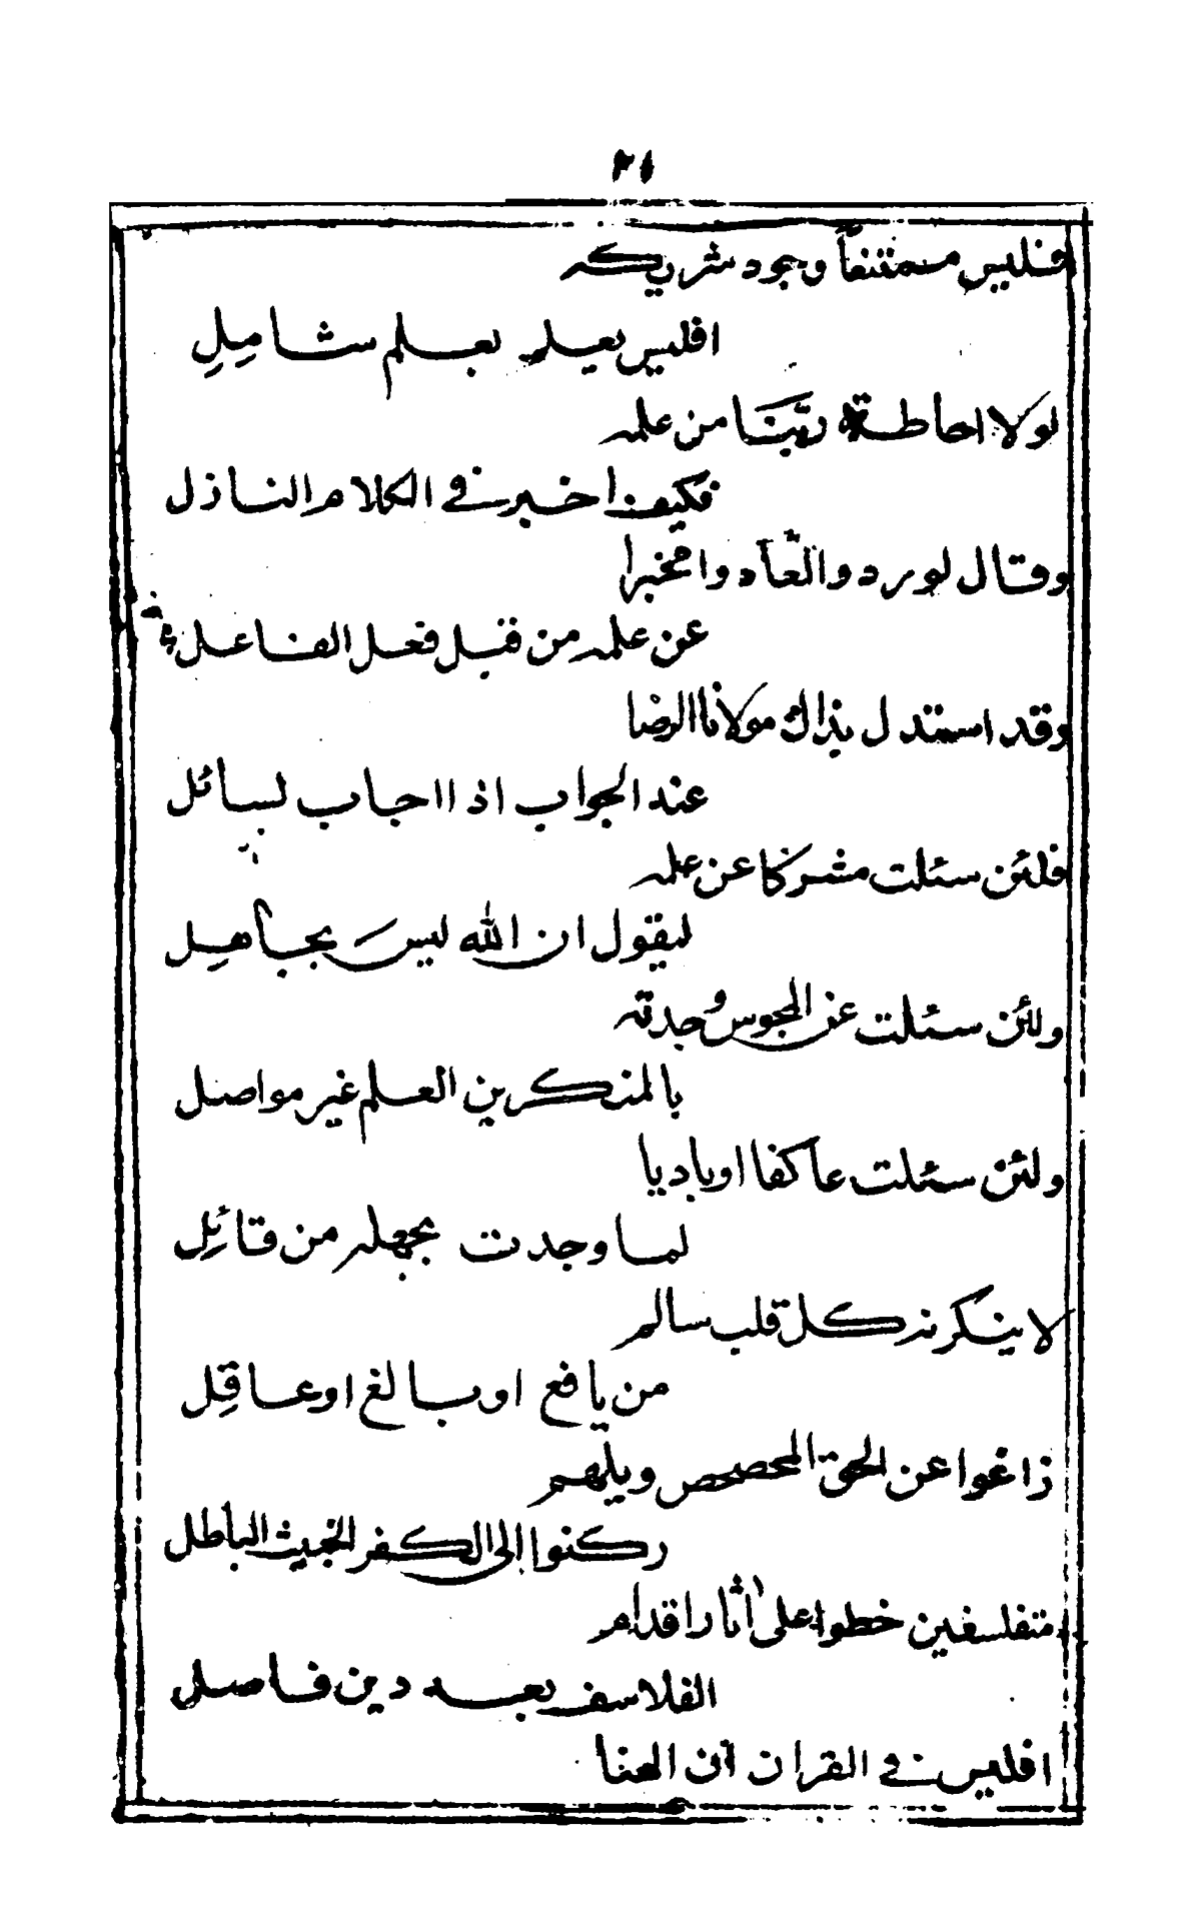 ٢١
فليس ممتنعاً وجود شريكه
افليس يعلمه بعلم شامِلِ
لولا احاطة ربّنا من علمه
فكيف اخبر في الكلام النازل
وقال لو ردوا لعادوا مخبرا
عن علمه من قبل فعل الفاعل
وقد استدل بذاك مولانا الرضا
عند الجواب اذا اجاب لسائل
فلئن سئلت مشركا عن علمه
ليقول ان الله ليس بجاهِل
ولئن سئلت عن المجوس وجدته
بالمنكرين العلم غير مواصل
ولئن سئلت عاكفا او باديا
لما وجدت بجهله من قائِل
لا ينكرنه كل قلب سالم
من يافع او بالغ او عاقِل
زاغوا عن الحق المحصحص ويلهم
ركنوا إلى الكفر الخبيث الباطل
متفلسفين خطوا على اثار اقدام
الفلاسف بعد دين فاصل
افليس في القران ان الهنا